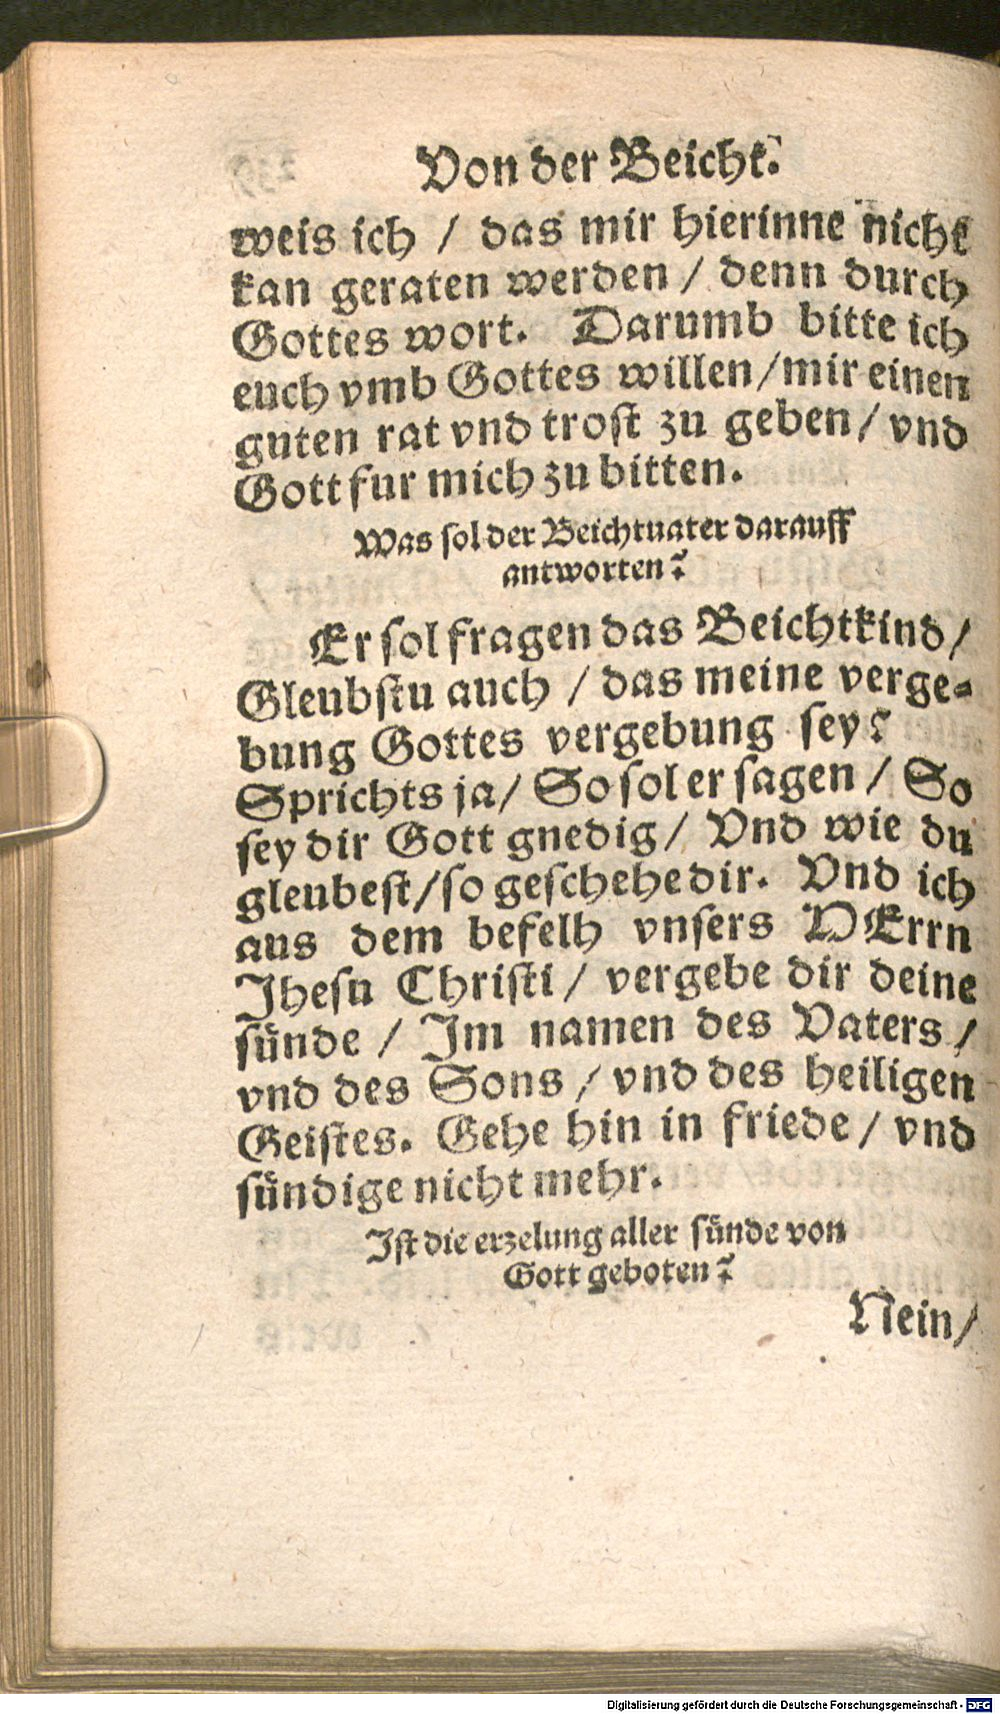 Von der Beicht.
weis ich / das mir hierinne nicht
kan geraten werden / denn durch
Gottes wort. Darumb bitte ich
euch vmb Gottes willen / mir einen
guten rat vnd trost zu geben / vnd
Gott fur mich zu bitten.
Was sol der Beichtuater darauff
antworten?
Er sol fragen das Beichtkind /
Gleubstu auch / das meine verge-
bung Gottes vergebung sey?
Sprichts ja / So sol er sagen / So
sey dir Gott gnedig / Vnd wie du
gleubest / so geschehe dir. Vnd ich
aus dem befelh vnsers HErrn
Jhesu Christi / vergebe dir deine
sünde / Im namen des Vaters /
vnd des Sons / vnd des heiligen
Geistes. Gehe hin in friede / vnd
sündige nicht mehr.
Ist die erzelung aller sünde von
Gott geboten?
Nein /
Digitalisierung gefördert durch die Deutsche Forschungsgemeinschaft - DFG